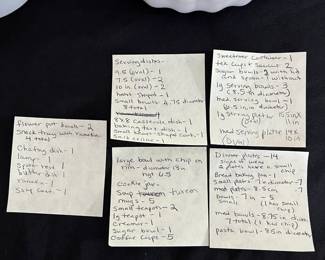 flower pot bowls - 2
Snack tray with
4 total
Chafing dish - 1
lamp - 1
Spoon rest 1
butter dish 1
1
Salt 1
Serving dishes
9.5 (oval) - 1
7.5 (oval) - 2
10 in (oval) - 2
heart shaped - 1
Small bowls 4.75 diameter
8 total
8x8 Casserole dish - 1
baking / tart dish - 1
Small heart shaped - 1
- 1
Sweetener Container - 1
tea cups 2
Sugar bowls - 2 with lid
and spoon - 1 without
lg Serving bowls - 3
(8.5 diameter)
med Serving bowl - 1
(6.5 in diameter)
lg Serving platter
(oval)
med Serving plate
(oval) 10 in
large bowl with chip on
rim - diameter 13in
hgt 6.5
Cookie jar -
Soup tureen
mugs - 5
Small teapots - 2
lg teapot - 1
Creamer - 1
Sugar bowl - 1
Coffee cups - 5
Dinner plates - 14
have a small
Bread baking pan - 1 chip
Small plates 7in diameter - 7
med plates - 8.5 in
bowls - 7 in - 5
Small (1 has small
chip)
med bowls - 8.75 in diam
7 total (1 has chip)
pasta bowl - 8.5 in diameter